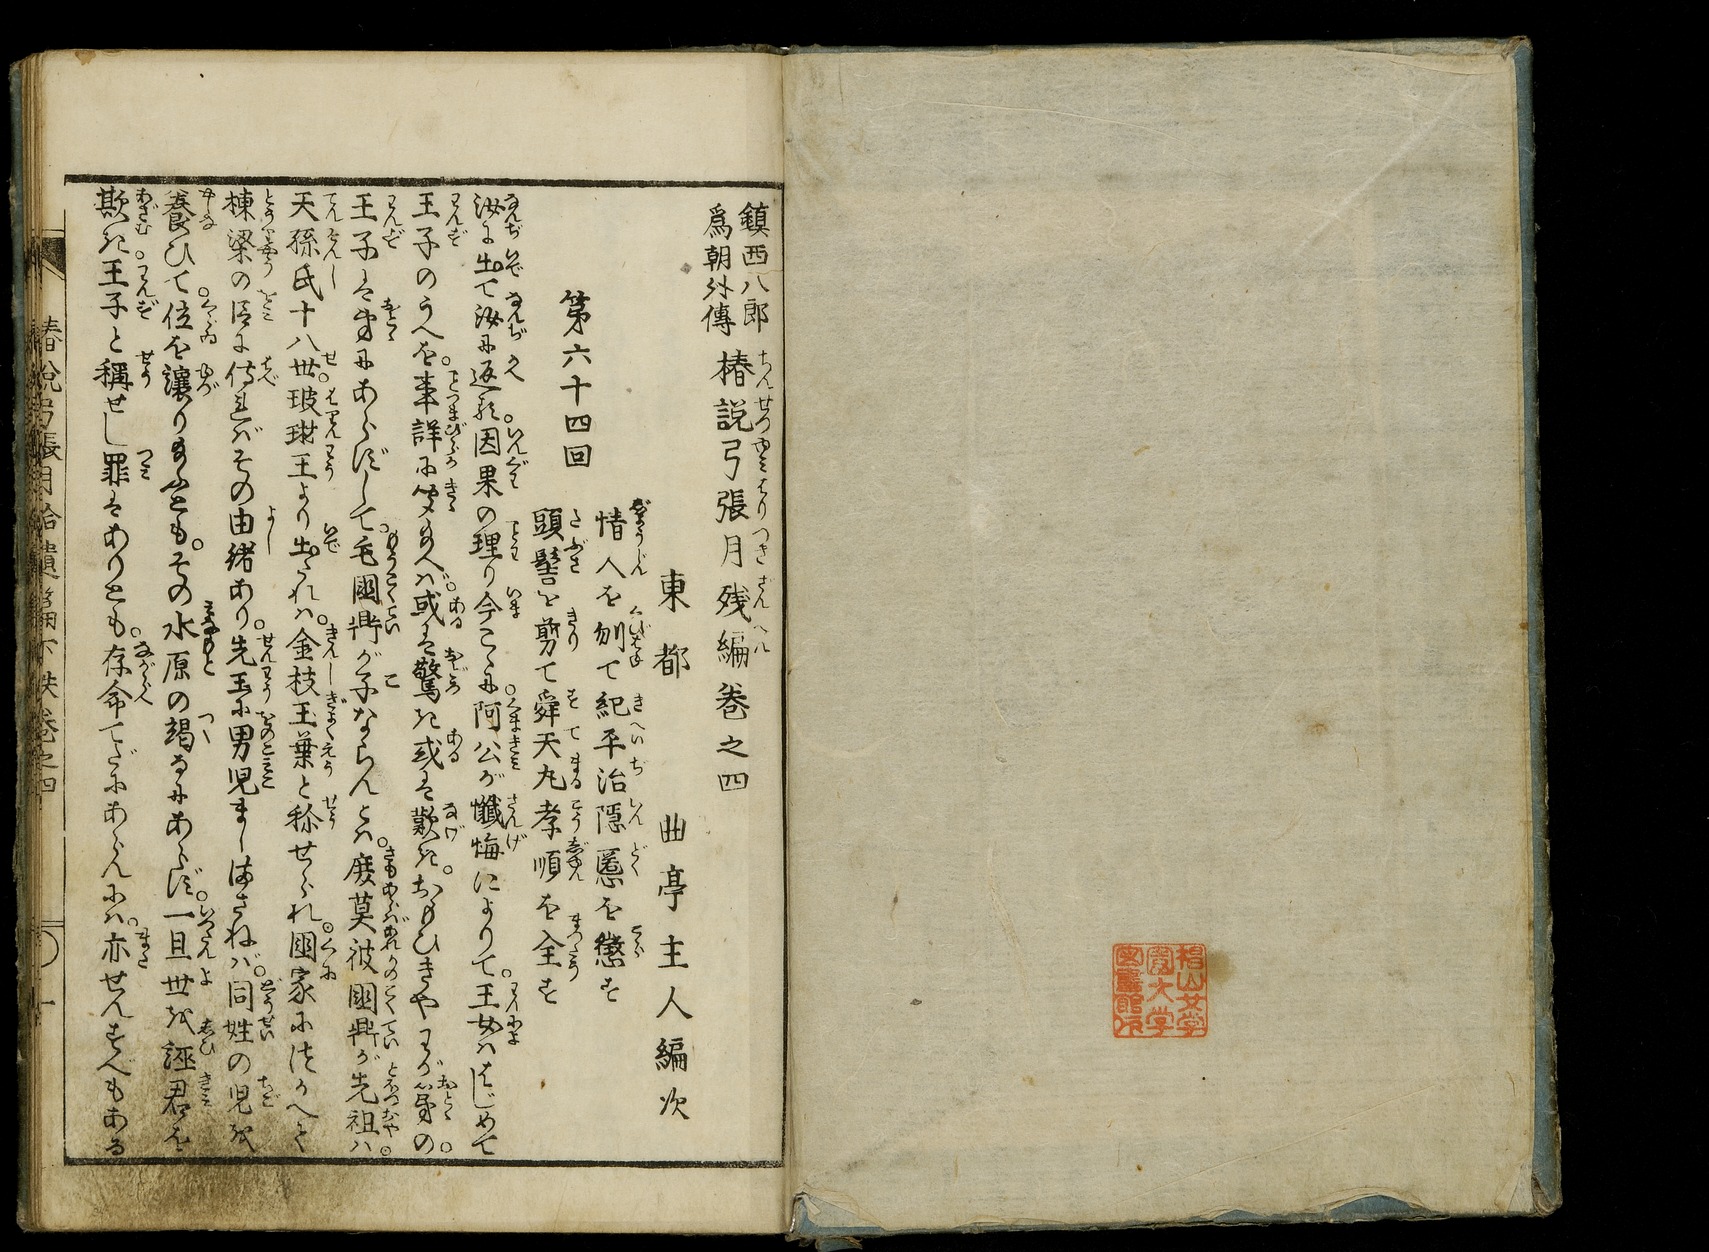 鎮西八郎
為朝外傳
椿説弓張月残編巻之四
ちんせつゆみはりつきざんへん
東都 曲亭主人編次
第六十四回
情人を刎て紀平治隠慝を懲す
頭髻を剪て舜天丸孝順を全す
汝に出て汝に返る。因果の理り今こゝに阿公が懺悔によりて。王女ははじめて
王子のうへを。事詳に聞給へば。或は驚き或は歎き。おもひきやわが弟の。
王子は弟にあらずして。毛國鼎が子ならんとは。縡莫彼國鼎が先祖は。
天孫氏十八世。玻琳王より出たれば。金枝玉葉と称せられ。國家につかへて
棟梁の臣に侍れば。その由緒あり。先王に男児ましまさねば。同姓の児を
養ひて。位を譲り給ふとも。その水原の竭るにあらず。一旦世を誣君を
欺き。王子と稱せし罪はありとも。存命てだにあらんには。亦せんすべもある
椿説弓張月拾遺篇下帙巻之四
椙山女学
園大学
図書館印